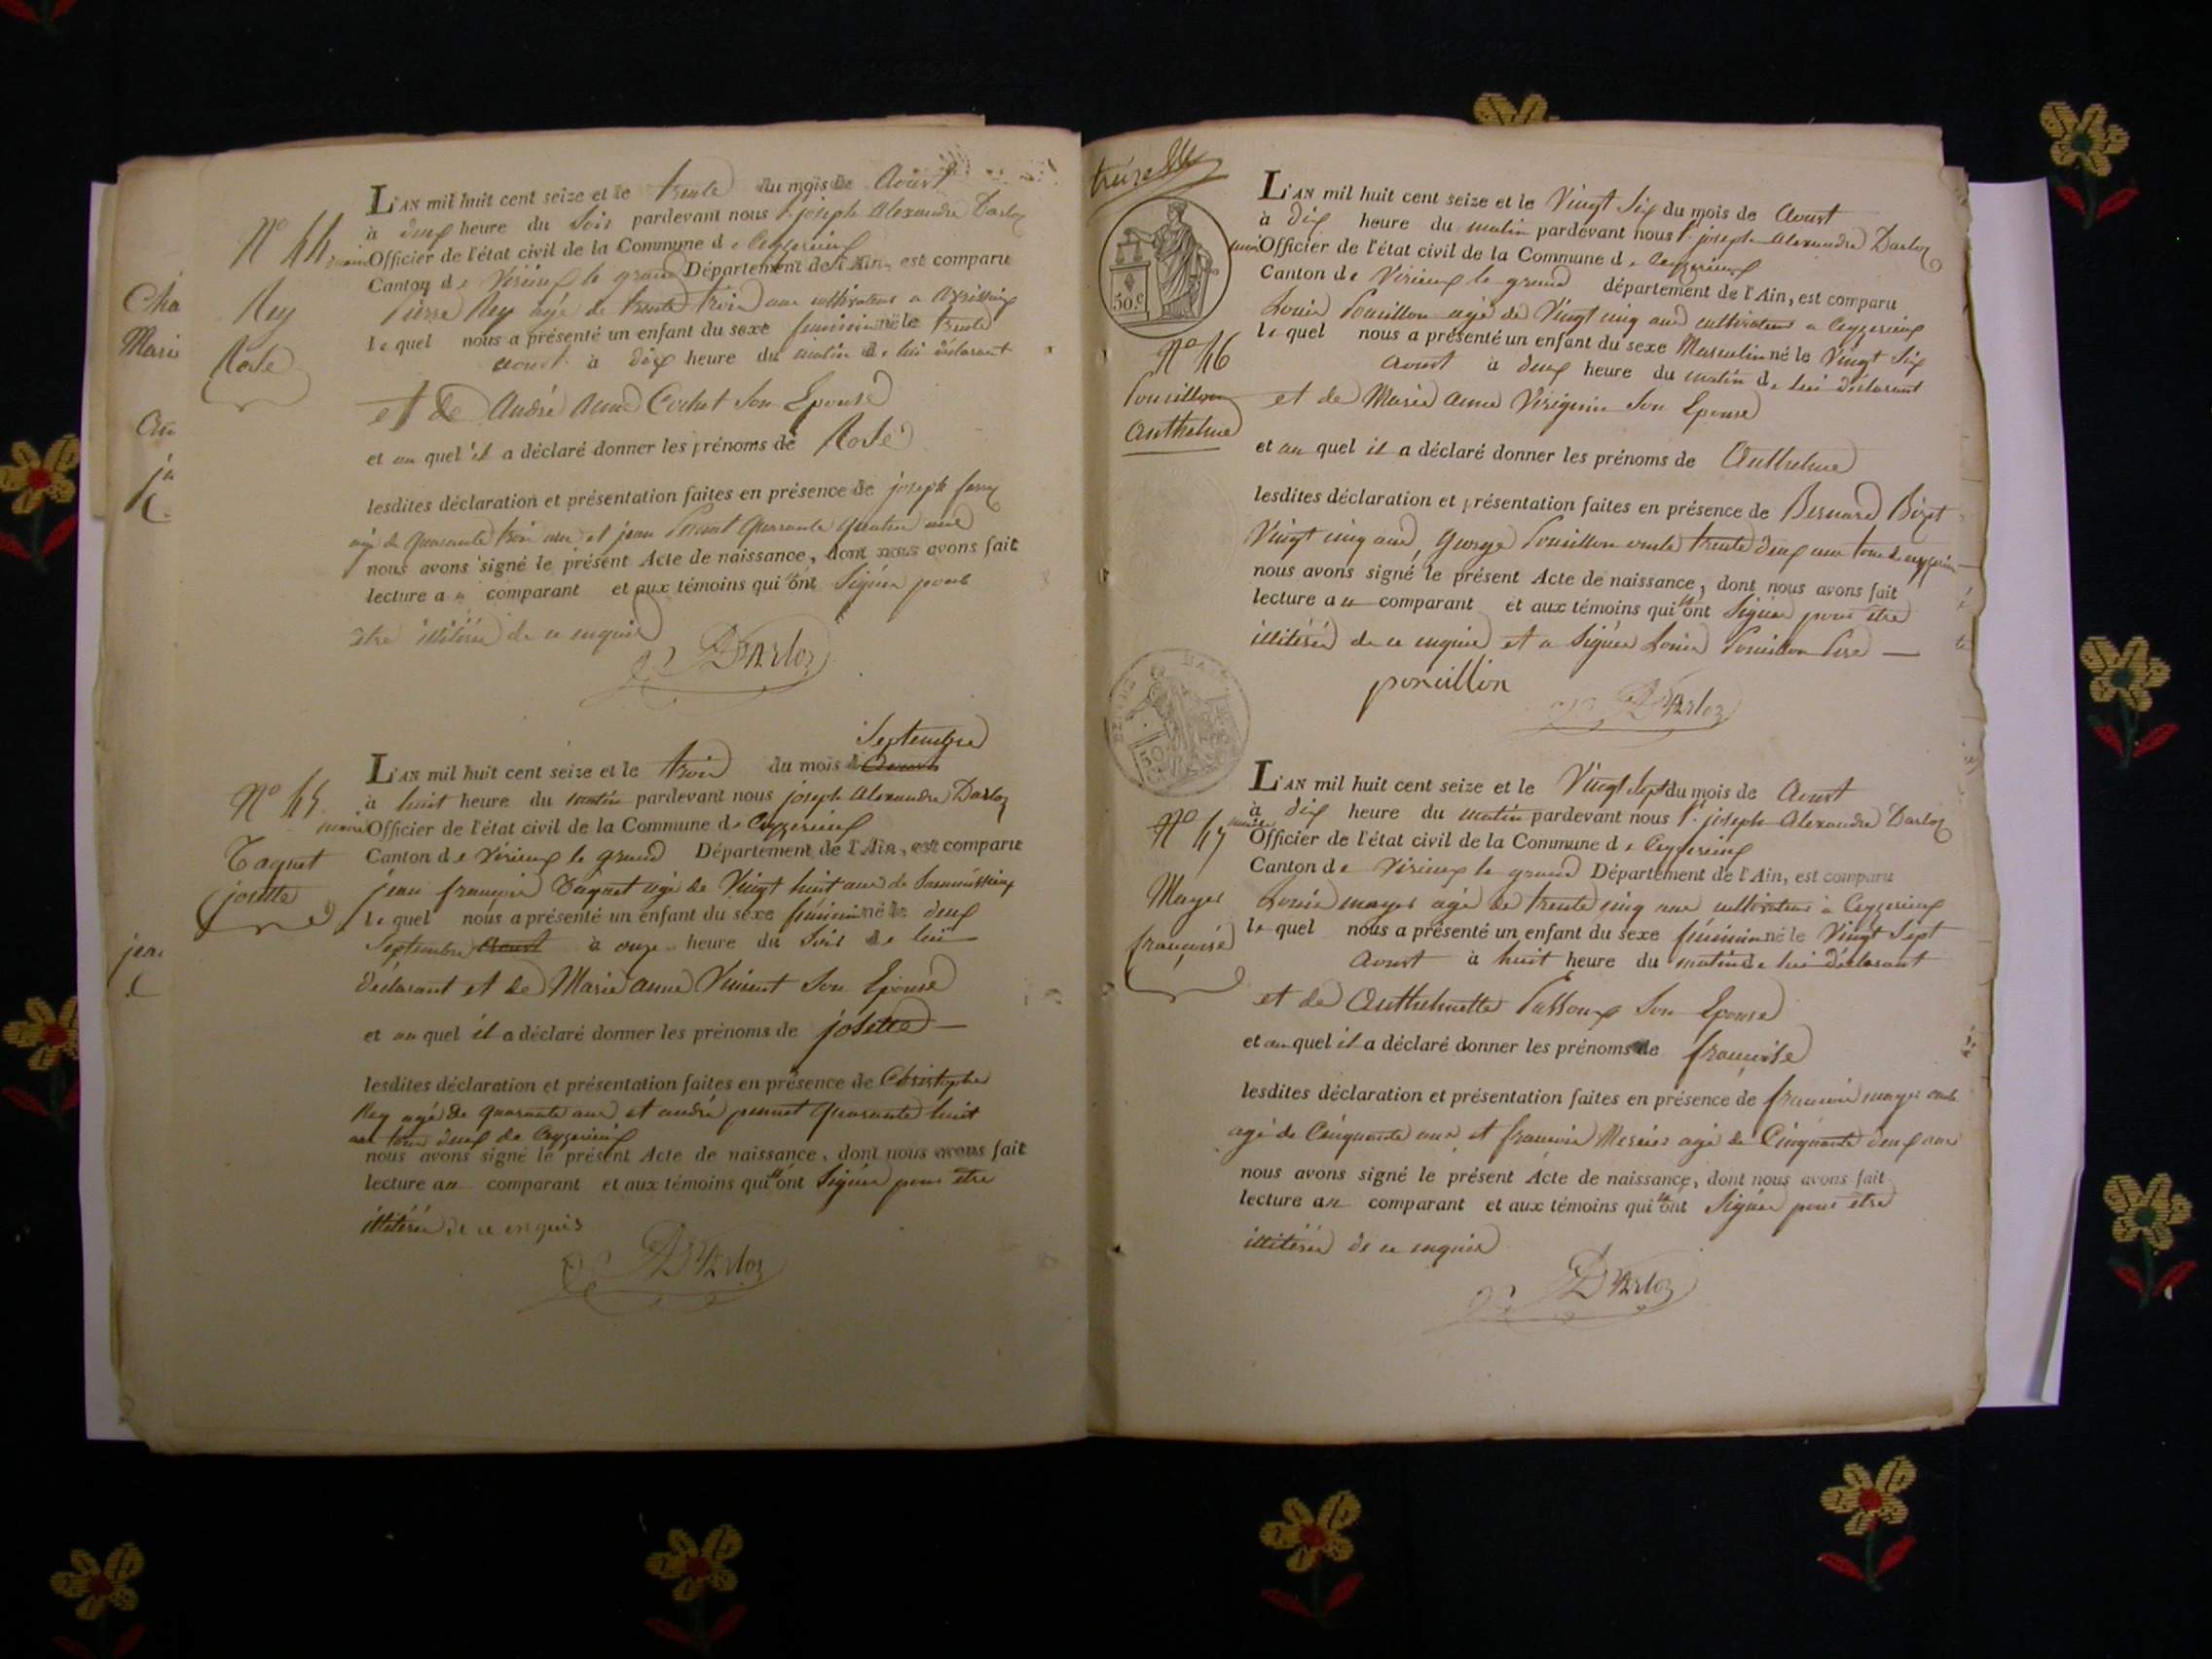 L'AN mil huit cent seize et le trente du mois de Aoust
à deux heure du Soir pardevant nous Sr joseph Alexandre Darloz
N° 44
maire Officier de l'état civil de la Commune de Ceyzerieux
Canton de Virieux le grand Département de l'Ain, est comparu
Rey
Rose
Pierre Rey agé de trente trois ans cultivateur a
le quel nous a présenté un enfant du sexe feminin né le trente
aoust à dix heure du matin de lui déclarant
et de André Anne Cochet Son Epouse
et au quel il a déclaré donner les prénoms de Rose
lesdites déclaration et présentation faites en présence de joseph
agé de quarante trois ans et jean quarante quatre ans
nous avons signé le présent Acte de naissance, dont nous avons fait
lecture au comparant et aux témoins qui n'ont Signés pour
etre illitérés de ce enquis
Darloz
Cha
Marie
jea
L'AN mil huit cent seize et le trois du mois de Aoust Septembre
N° 45
à huit heure du matin pardevant nous joseph Alexandre Darloz
maire Officier de l'état civil de la Commune de Ceyzerieux
Canton de Virieux le grand Département de l'Ain, est comparu
Taquet
josette
jean françois Taquet agé de Vingt huit ans de
le quel nous a présenté un enfant du sexe féminin né le deux
Septembre Aoust à onze heure du Soir de lui
déclarant et de Marie anne Vincent Son Epouse
et au quel il a déclaré donner les prénoms de josette
lesdites déclaration et présentation faites en présence de Christophe
Rey agé de quarante ans et andré quarante huit
ans tous deux de Ceyzerieux
nous avons signé le présent Acte de naissance, dont nous avons fait
lecture au comparant et aux témoins qui n'ont Signés pour etre
illitérés de ce enquis
Darloz
treize
50.c
L'AN mil huit cent seize et le Vingt Six du mois de Aoust
à dix heure du matin pardevant nous Sr joseph Alexandre Darloz
maire Officier de l'état civil de la Commune de Ceyzerieux
Canton de Virieux le grand département de l'Ain, est comparu
N° 46
Pouillon
Anthelme
Louis Pouillon agé de Vingt cinq ans cultivateur a Ceyzerieux
le quel nous a présenté un enfant du sexe Masculin né le Vingt Six
Aoust à deux heure du matin de lui déclarant
et de Marie Anne Son Epouse
et au quel il a déclaré donner les prénoms de Anthelme
lesdites déclaration et présentation faites en présence de Bernard Bizet
Vingt cinq ans, George Pouillon oncle trente deux ans tous de Ceyzerieux
nous avons signé le présent Acte de naissance, dont nous avons fait
lecture au comparant et aux témoins qui n'ont Signés pour être
illitérés de ce enquis et a Signé Louis Pouillon Pere
pouillon
Darloz
L'AN mil huit cent seize et le Vingt Sept du mois de Aoust
à dix heure du matin pardevant nous Sr joseph Alexandre Darloz
N° 47
maire Officier de l'état civil de la Commune de Ceyzerieux
Canton de Virieux le grand Département de l'Ain, est comparu
Mayer
françoise
Louis mayer agé de trente cinq ans cultivateur a Ceyzerieux
le quel nous a présenté un enfant du sexe féminin né le Vingt Sept
Aoust à huit heure du matin de lui déclarant
et de Anthelmette Son Epouse
et au quel il a déclaré donner les prénoms de françoise
lesdites déclaration et présentation faites en présence de françois mayer oncle
agé de Cinquante ans et françois Mercier agé de Cinquante deux ans
nous avons signé le présent Acte de naissance, dont nous avons fait
lecture au comparant et aux témoins qui n'ont Signés pour être
illitérés de ce enquis
Darloz